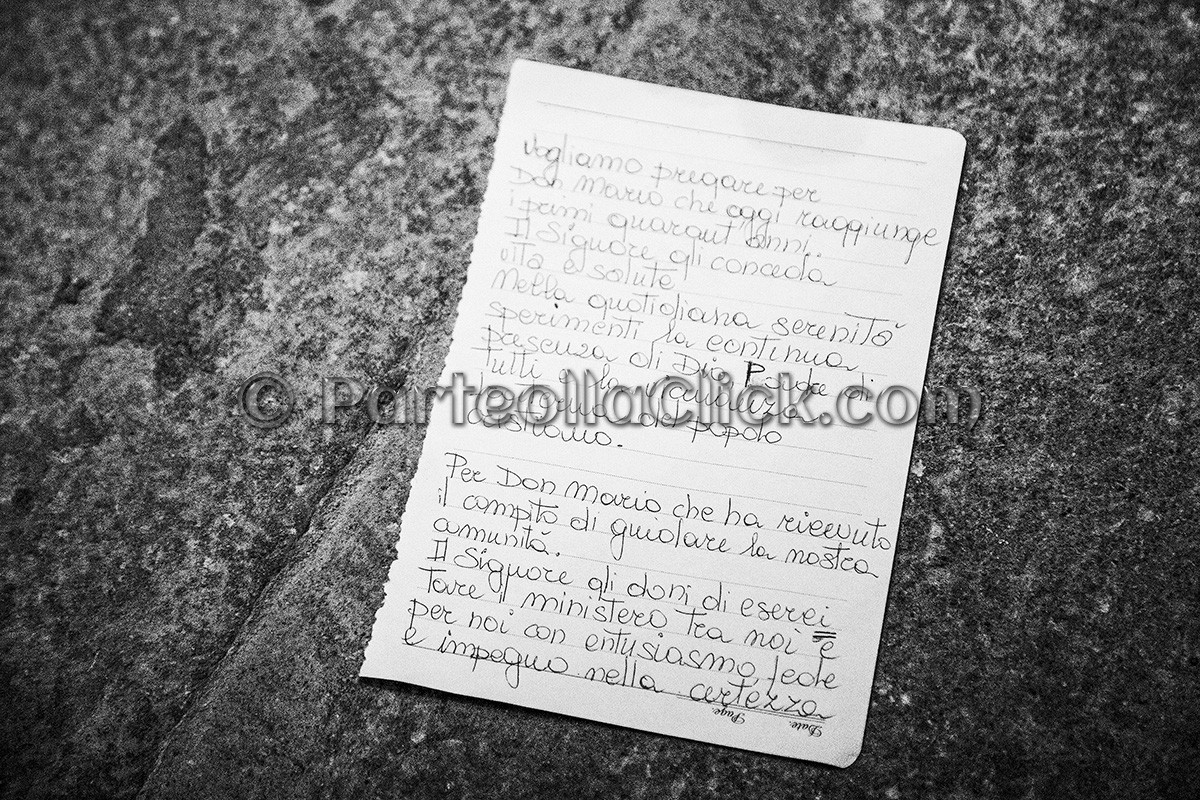 vogliamo pregare per
Don Mario che oggi raggiunge
i primi quarant anni.
Il Signore gli conceda
vita e salute
Nella quotidiana serenità
sperimenti la continua
di Dio Padre di
tutti e la vicinanza
del popolo
© ParteollaClick.com
Per Don Mario che ha ricevuto
il compito di guidare la nostra
comunità.
Il Signore gli doni di eserci
tare il ministero tra noi e
per noi con entusiasmo, fede
e impegno nella certezza
Page:
Date: